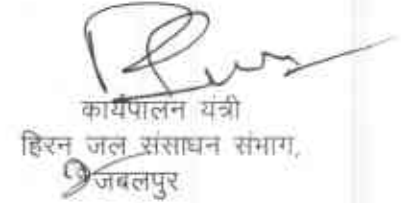 कार्यपालन यंत्री
हिरन जल संसाधन संभाग,
जबलपुर